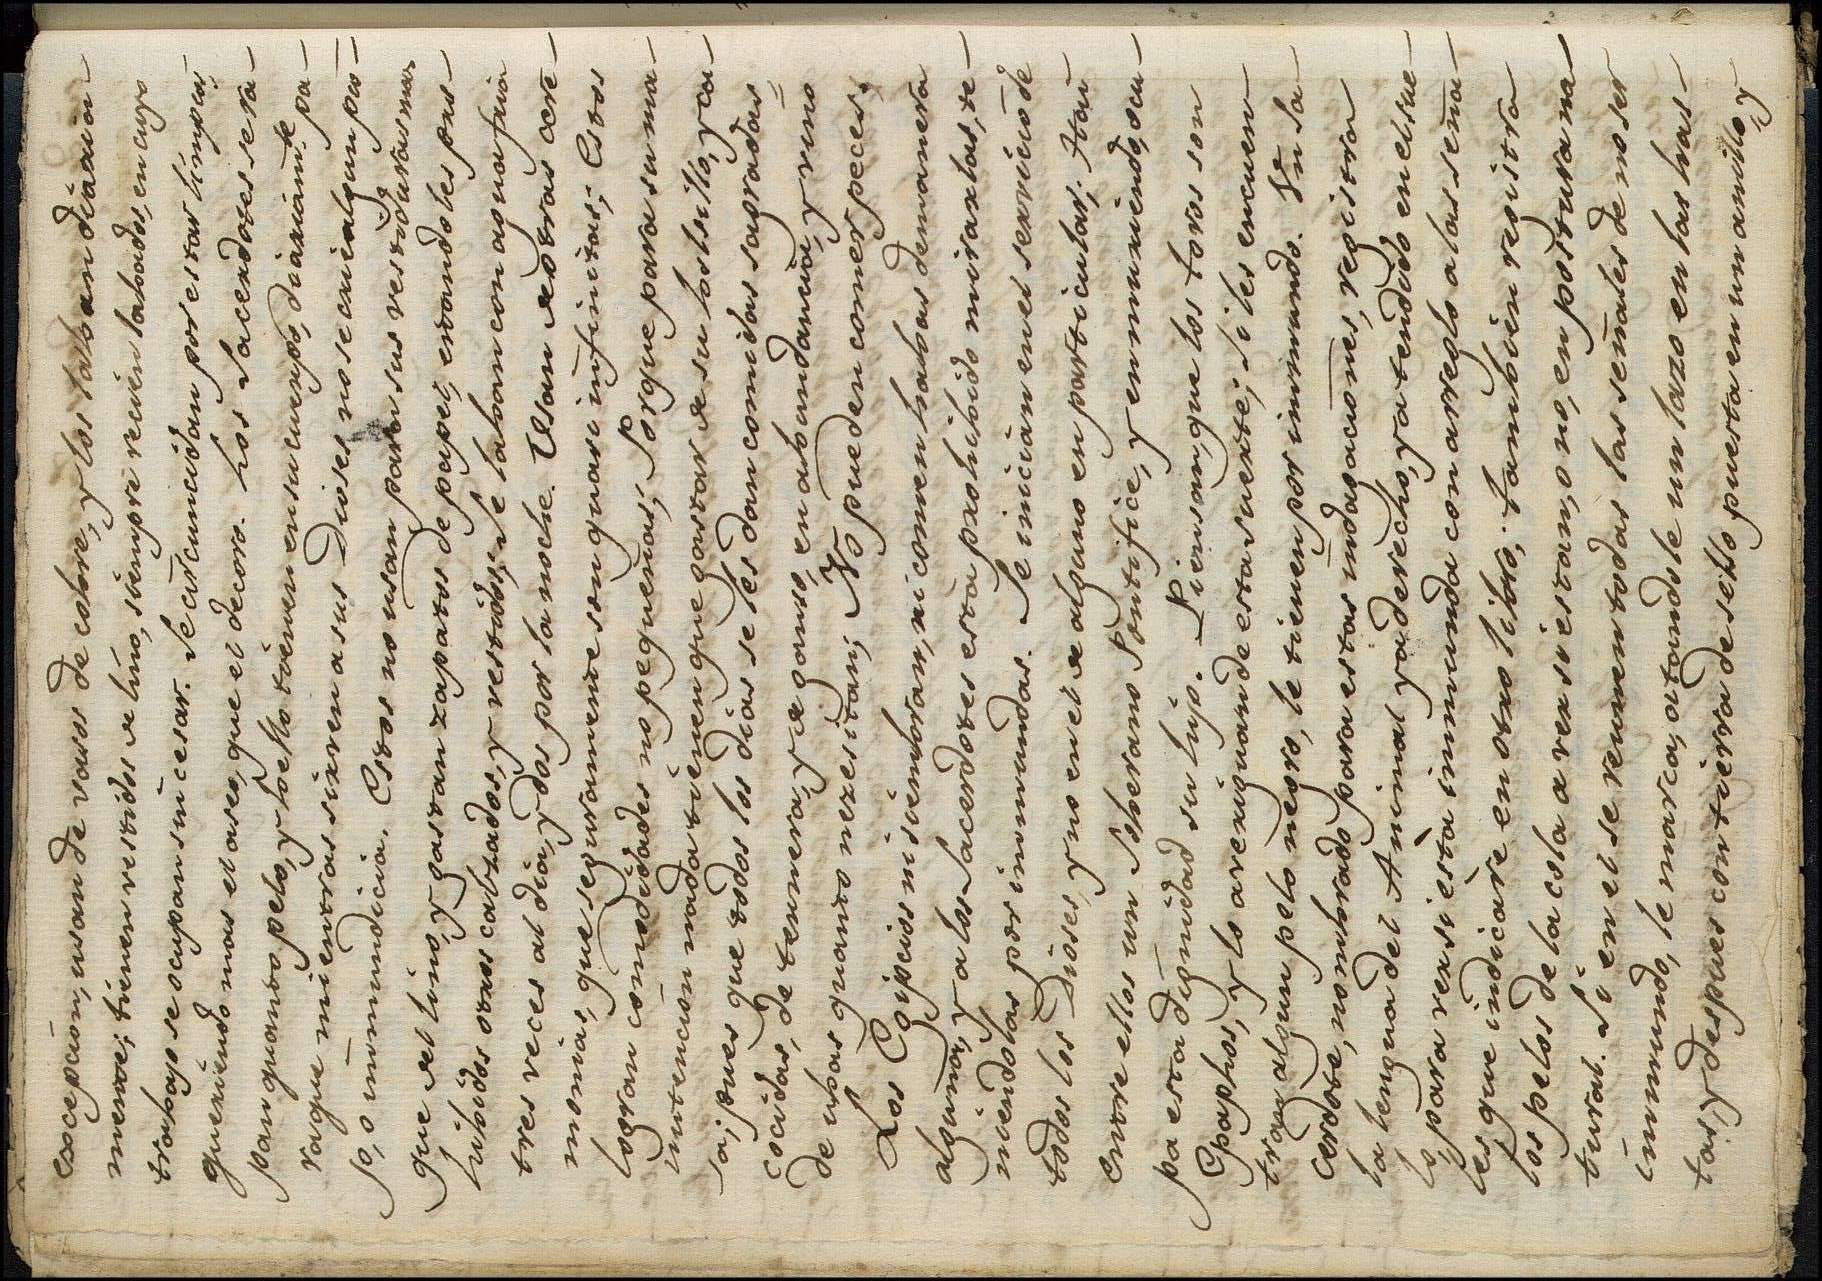 excepcion, usan de vasos de cobre, y los laban diaria-
mente; tienen vestidos de lino, siempre recien labados, en cuyo
trabajo se ocupan sin cesar. Se circuncidan por estar limpios,
queriendo mas el aseo, que el decoro. Los Sacerdotes se ra-
pan quanto pelo, y bello tienen en su cuerpo, diariam.te pa-
ra que mientras sirven a sus Dioses no se crie algun pio-
jo, o inmundicia. Estos no usan para sus vestiduras mas
que del lino, y gastan zapatos de papel, erandoles pro-
hibidos otros calzados, y vestidos; se laban con agua fria
tres veces al dia, y dos por la noche. Usan de otras cere-
monias, que seguramente son quasi infinitas; Estos
logran comodidades no pequeñas; Porque para su ma-
nutencion nada tienen que gastar de su bolsillo, y ca-
sa; pues que todos los dias se les dan comidas sagradas,
cocidas, de ternera, y de ganso, en abundancia, y vino
de ubas quanto necesitan; No pueden comer peces.
Los Egipcios ni siembran, ni comen habas de manera
alguna, y a los Sacerdotes esta prohibido mirarlas, te-
niendolas por inmundas. Se inician en el servicio de
todos los Dioses, y no en el de alguno en particular. Hai
entre ellos un Soberano Pontifice, y en muriendo, ocu-
pa esta dignidad su hijo. Piensan, que los toros son
Epaphos, y lo averiguan de esta suerte; si les encuen-
tran algun pelo negro, le tienen por inmundo. Un Sa-
cerdote, nombrado para estas indagaciones, registra
la lengua del Animal ya derecho, ya tendido en el sue-
lo, para ver si està inmunda con arreglo a las seña-
les, que indicarè en otro libro; tambien registra
los pelos de la cola a ver si estan, o no, en postura na-
tural. Si en el se reunen todas las señales de no ser
inmundo, le marca, atandole un lazo en las has-
tas, y despues con tierra de sello puesta en un anillo, y